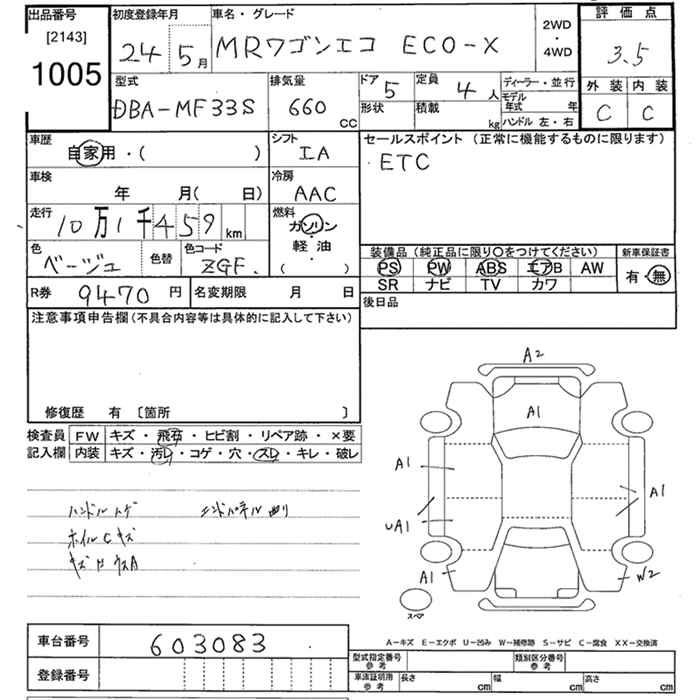 出品番号 初度登録年月 車名・グレード 2WD ・ 4WD 評価点
[2143]
1005 24 5月 MRワゴンエコ ECO-X 3.5
型式 排気量 ドア 5 定員 4人 ディーラー・並行 外装 内装
DBA-MF33S 660 CC 形状 積載 kg モデル年式 年 C C
ハンドル 左・右
車歴 シフト セールスポイント (正常に機能するものに限ります)
自家用・( ) IA ETC
車検 冷房
年 月( 日) AAC
走行 燃料
10万1千459 km ガソリン
・軽油・
( )
色 色替 色コード 装備品 (純正品に限り○をつけてください) 新車保証書
ベージュ ZGF. PS PW ABS エアB AW 有・無
SR ナビ TV カワ
R券 9470円 名変期限 月 日 後日品
注意事項申告欄(不具合内容等は具体的に記入して下さい)
修復歴 有 [箇所 ]
検査員 FW キズ・飛石・ヒビ割・リペア跡・×要
記入欄 内装 キズ・汚レ・コゲ・穴・スレ・キレ・破レ
ハンドル ハゲ エンドパネル曲り
ホイルCキズ
A2
A1
A1 A1
UA1
A1 W2
スペア
A-キズ E-エクボ U-凹み W-補修跡 S-サビ C-腐食 XX-交換済
車台番号 603083
型式指定番号 参考 類別区分番号 参考
登録番号 車庫証明用 参考 長さ cm 幅 cm 高さ cm